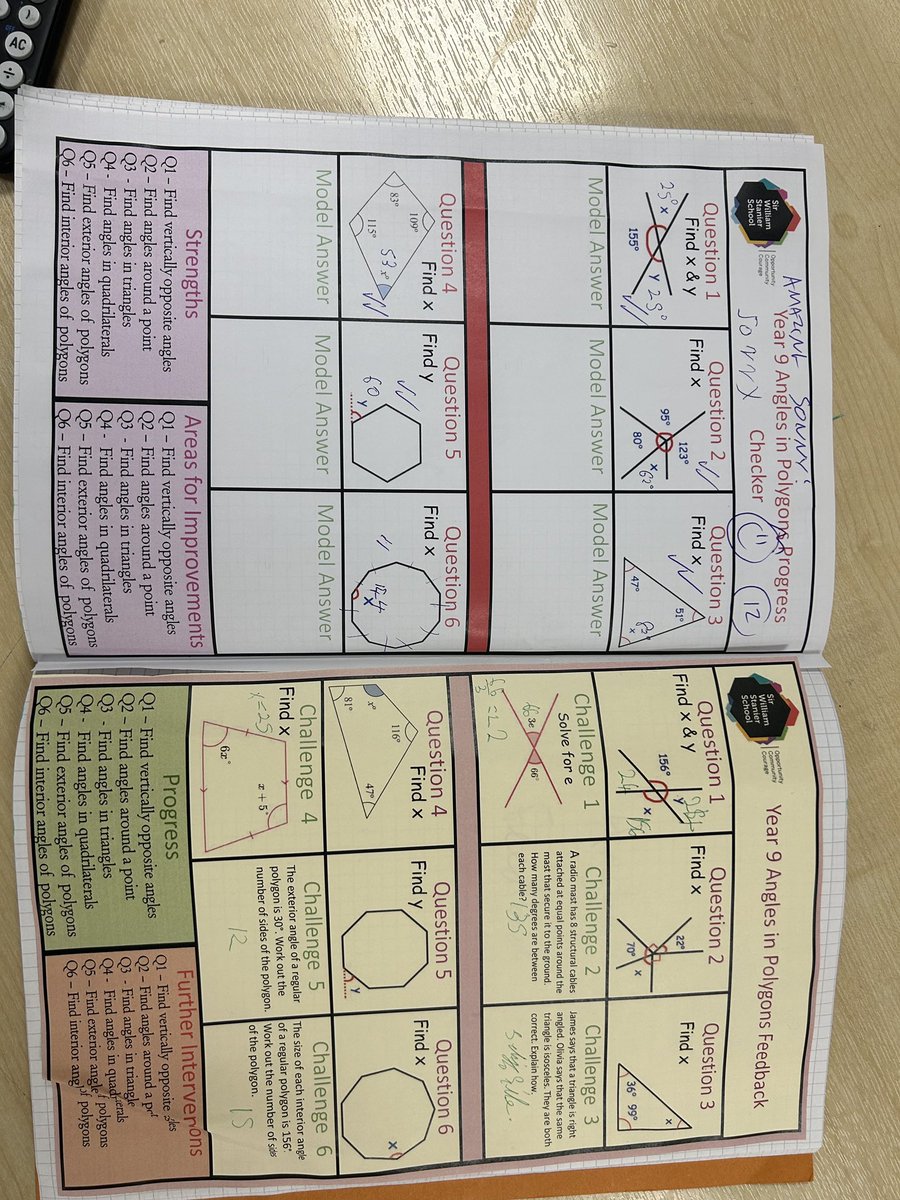 AC
÷
Sir
William
Stanier
School
Opportunity
Community
Courage
AMAZING SONNY!
Year 9 Angles in Polygons Progress
Checker
11
12
Question 1
Find x & y
25° x
y 25°
155°
Question 2
Find x
123°
95°
x 62°
80°
Question 3
Find x
51°
47°
x
Model Answer
Model Answer
Model Answer
Question 4
Find x
109°
83°
53 x°
115°
Question 5
Find y
60
y
Question 6
Find x
144
x
Model Answer
Model Answer
Model Answer
Strengths
Q1 – Find vertically opposite angles
Q2 – Find angles around a point
Q3 - Find angles in triangles
Q4 - Find angles in quadrilaterals
Q5 – Find exterior angles of polygons
Q6 – Find interior angles of polygons
Areas for Improvements
Q1 – Find vertically opposite angles
Q2 – Find angles around a point
Q3 - Find angles in triangles
Q4 - Find angles in quadrilaterals
Q5 – Find exterior angles of polygons
Q6 – Find interior angles of polygons
Sir
William
Stanier
School
Opportunity
Community
Courage
Year 9 Angles in Polygons Feedback
Question 1
Find x & y
156°
y
24
x
Question 2
Find x
22°
x
70°
Question 3
Find x
x
36° 99°
Challenge 1
Solve for e
66 3e
66°
Challenge 2
A radio mast has 8 structural cables
attached at equal points around the
mast that secure it to the ground.
How many degrees are between
each cable? 135
Challenge 3
James says that a triangle is right
angled. Olivia says that the same
triangle is isosceles. They are both
correct. Explain how.
Question 4
Find x
116°
x°
81°
47°
Question 5
Find y
y
Question 6
Find x
x
Challenge 4
Find x
x=25
x + 5°
6x°
Challenge 5
The exterior angle of a regular
polygon is 30°. Work out the
number of sides of the polygon.
12
Challenge 6
The size of each interior angle
of a regular polygon is 156°.
Work out the number of sides
of the polygon.
15
Progress
Q1 – Find vertically opposite angles
Q2 – Find angles around a point
Q3 - Find angles in triangles
Q4 - Find angles in quadrilaterals
Q5 – Find exterior angles of polygons
Q6 – Find interior angles of polygons
Further Interventions
Q1 – Find vertically opposite
Q2 – Find angles around a
Q3 - Find angles in triangle
Q4 - Find angles in quadrilaterals
Q5 – Find exterior angle of polygons
Q6 – Find interior ang of polygons